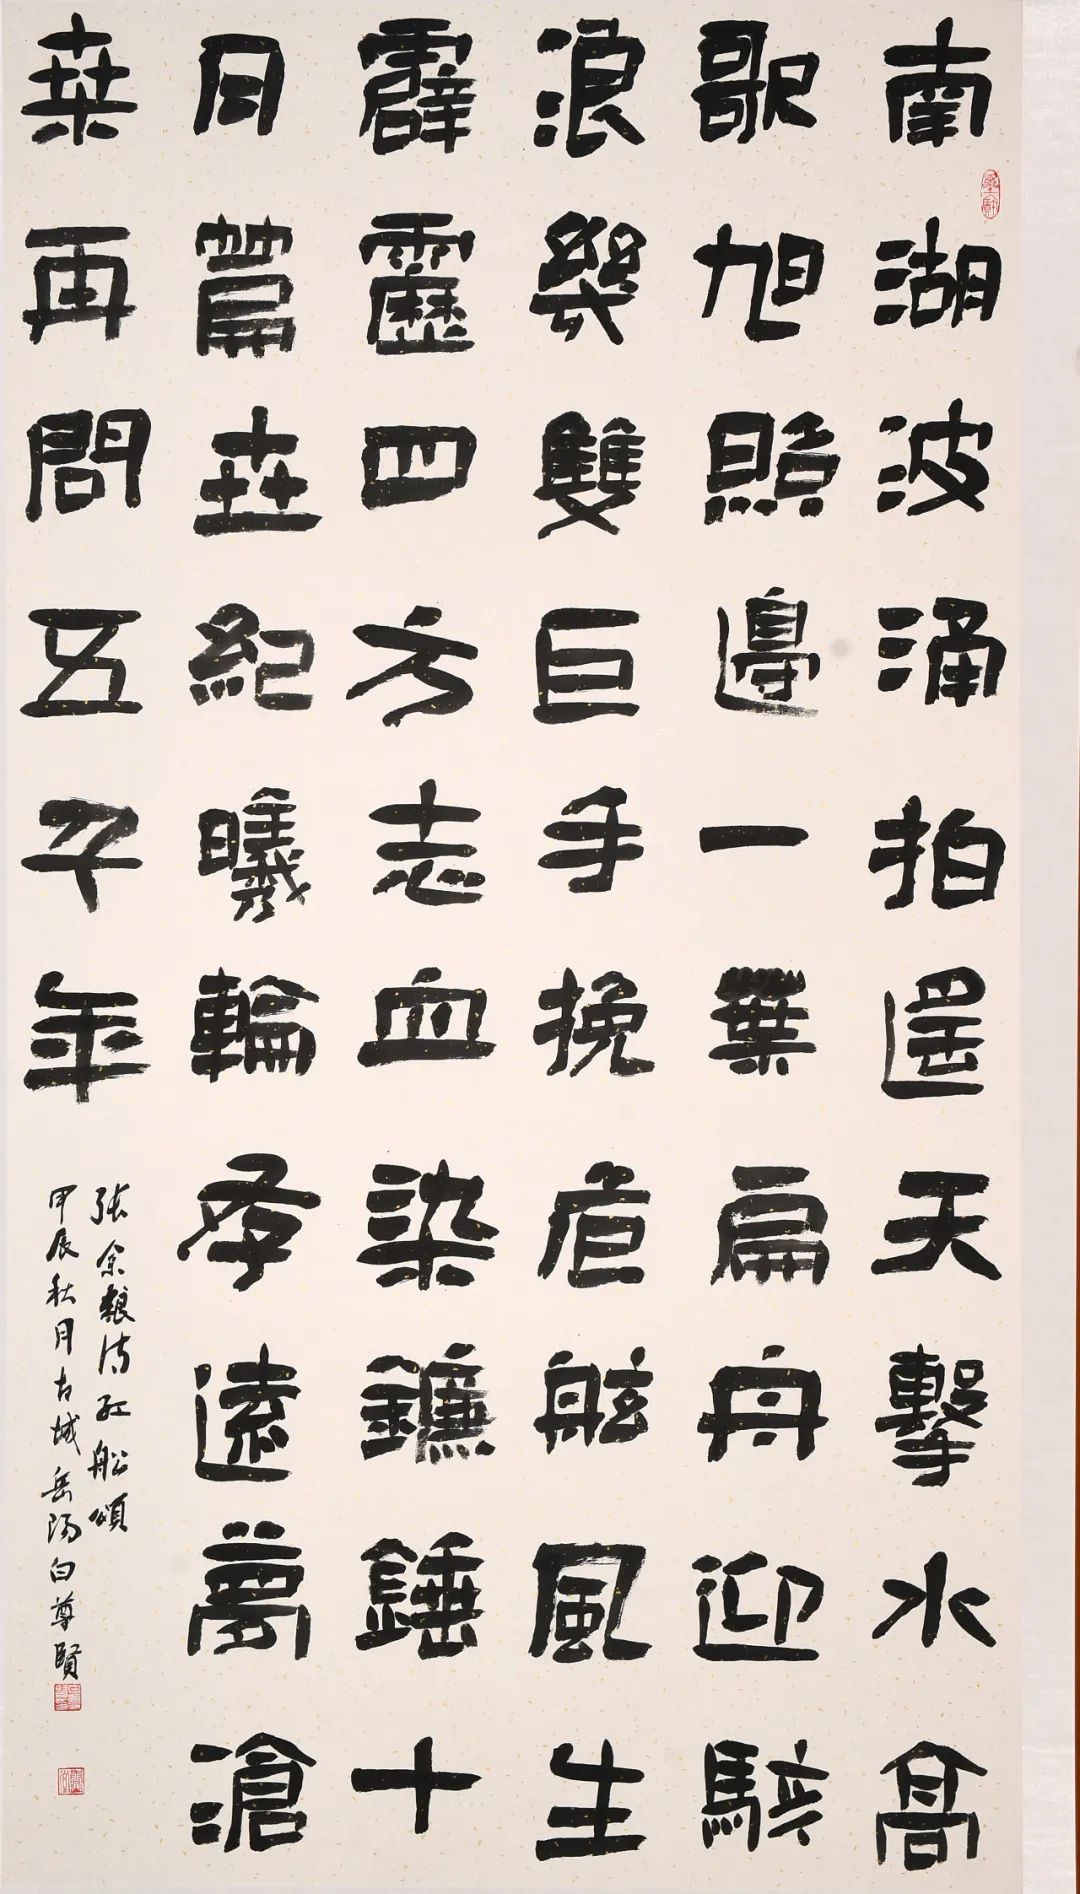 南湖波涌拍遙天擊水高
歌旭照邊一葉扁舟迎駭
浪幾雙巨手挽危舷風生
霹靂四方志血染鐮錘十
月篇世紀曦輪遠夢滄
桑再問五千年
张余粮诗红船頌
甲辰秋月古城岳陽白尊賢